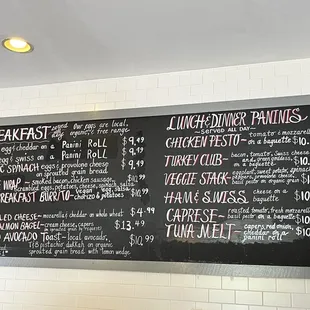 EAKFAST Served Our eggs are local,
organic & free range
eggs & cheddar on a Panini Roll $9.49
eggs & swiss on a Panini Roll $9.49
SPINACH eggs, provolone cheese $9.49
on a sprouted grain bread
WRAP - smoked bacon, chicken sausage
scrambled eggs, potatoes, cheese, salsa
REAKFAST BURRITO Vegan chorizo & potatoes
LED CHEESE - cheddar on whole wheat $4.49
MON BAGEL - cream cheese, capers $13.49
AVOCADO TOAST - local avocado, $10.99
pistachio dukkah on organic
sprouted grain bread with lemon wedge
LUNCH & DINNER PANINIS
~ SERVED ALL DAY ~
CHICKEN PESTO - tomato & mozzarella
on a baguette $10.
TURKEY CLUB - bacon, tomato, Swiss cheese
$10.
VEGGIE STACK - eggplant, sweet potato, spinach
peppers, provolone cheese
HAM & SWISS cheese on a
baguette $10.
CAPRESE - roasted tomato, fresh mozzarella
basil pesto on a baguette $10.
TUNA MELT - capers, red onion,
cheddar on a
panini roll $10.